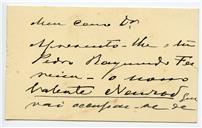 Meu caro Dr
Apresento-lhe o Sr
Pedro Raymundo Fer
reira - o nosso
Valente
vai occupar-se de